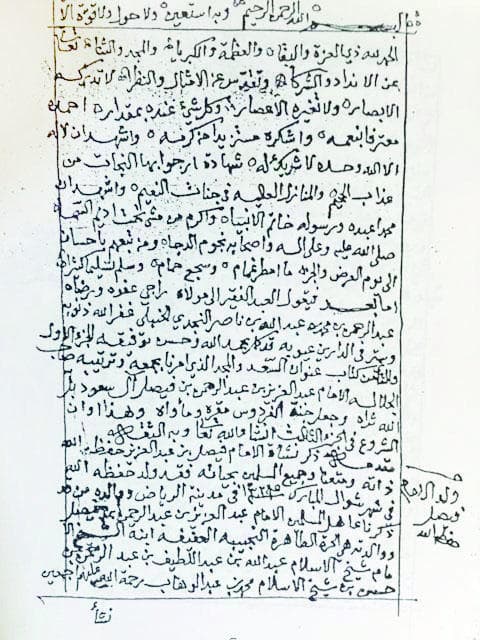 بسم الله الرحمن الرحيم وبه أستعين ولا حول ولا قوة الا
الحمد لله ذي العزة والبقاء والعظمة والكبرياء والمجد والثناء تعالى
عن الانداد والشركاء وتقدس عن الامثال والنظراء لا تدركه
الابصار ولا تغيره الاعصار وكل شيء عنده بمقدار احمده
معترفا بنعمه واشكره مستزيدا من كرمه واشهد ان لا اله
الا الله وحده لا شريك له شهادة ارجو بها النجاة من
عذاب الجحيم والمنازل العلية في جنات النعيم واشهد ان
محمدا عبده ورسوله خاتم الانبياء واكرم من مشى تحت اديم السماء
صلى الله عليه وعلى اله واصحابه نجوم الدجا ومن تبعهم باحسان
الى يوم العرض والجزاء ما امطر غمام وسجع حمام وسلم تسليما كثيرا
اما بعد فيقول العبد الفقير الى مولاه راجي عفوه ورضاه
عبد الرحمن بن محمد بن عبد الله بن ناصر النجدي الحنبلي غفر الله ذنوبه
وستر في الدارين عيوبه قد كمل بحمد الله وحسن توفيقه الجزء الاول
والثاني من كتاب عنوان السعد والمجد الذي امرنا بجمعه وترتيبه صاحب
الجلالة الامام عبد العزيز بن عبد الرحمن بن فيصل آل سعود بل
الله ثراه وجعل جنة الفردوس مقره ومأواه وهذا اوان
الشروع في الجزء الثالث انشاء الله تعالى وبه الثقة
مقدمة ذكر نشأة الامام فيصل بن عبد العزيز حفظه الله
ذاته ومتعنا وجميع المسلمين بحياته فقد ولد حفظه الله
في شهر شوال المبارك في مدينة الرياض ووالده من قد
ذكرنا عاهل المسلمين الامام عبد العزيز بن عبد الرحمن بن فيصل
ووالدته هي الحرة الطاهرة النجيبة العفيفة ابنة الشيخ
شيخ الاسلام عبد الله بن عبد اللطيف بن عبد الرحمن بن
حسن بن شيخ الاسلام محمد بن عبد الوهاب رحمة الله عليهم اجمعين
ولد الامام
فيصل
حفظه الله
نشأ